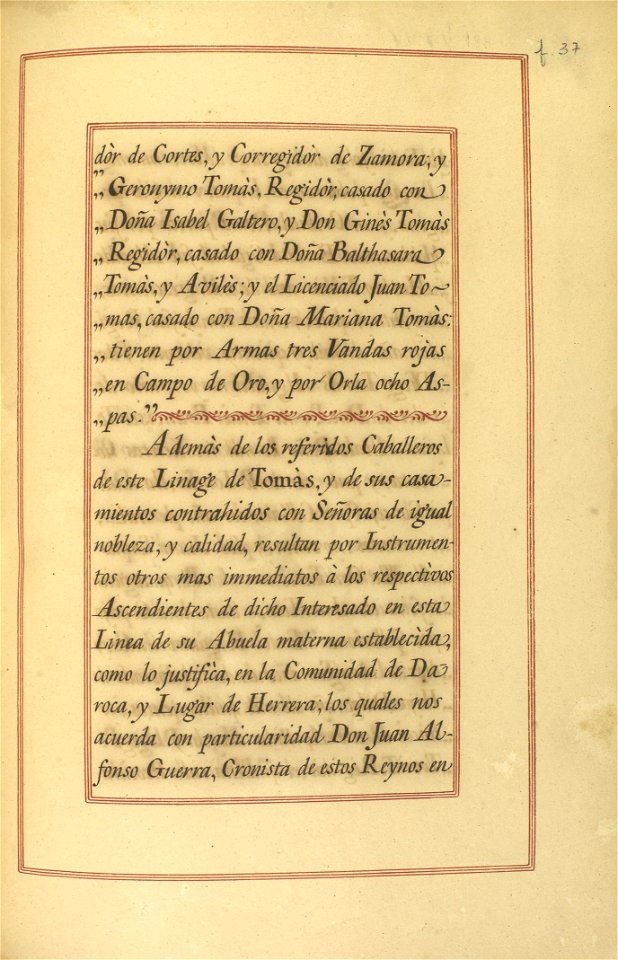 f. 37
dòr de Cortes, y Corregidòr de Zamora; y
„Geronymo Tomàs, Regidòr, casado con
„Doña Isabel Galtero, y Don Ginès Tomàs
„Regidòr, casado con Doña Balthasara
„Tomàs, y Avilès; y el Licenciado Juan To~
„mas, casado con Doña Mariana Tomàs:
„tienen por Armas tres Vandas rojas
„en Campo de Oro, y por Orla ocho As-
„pas."
Además de los referidos Caballeros
de este Linage de Tomàs, y de sus casa-
mientos contrahidos con Señoras de igual
nobleza, y calidad, resultan por Instrumen-
tos otros mas immediatos à los respectivos
Ascendientes de dicho Interesado en esta
Linea de su Abuela materna establecida,
como lo justifica, en la Comunidad de Da
roca, y Lugar de Herrera; los quales nos
acuerda con particularidad Don Juan Al-
fonso Guerra, Cronista de estos Reynos en